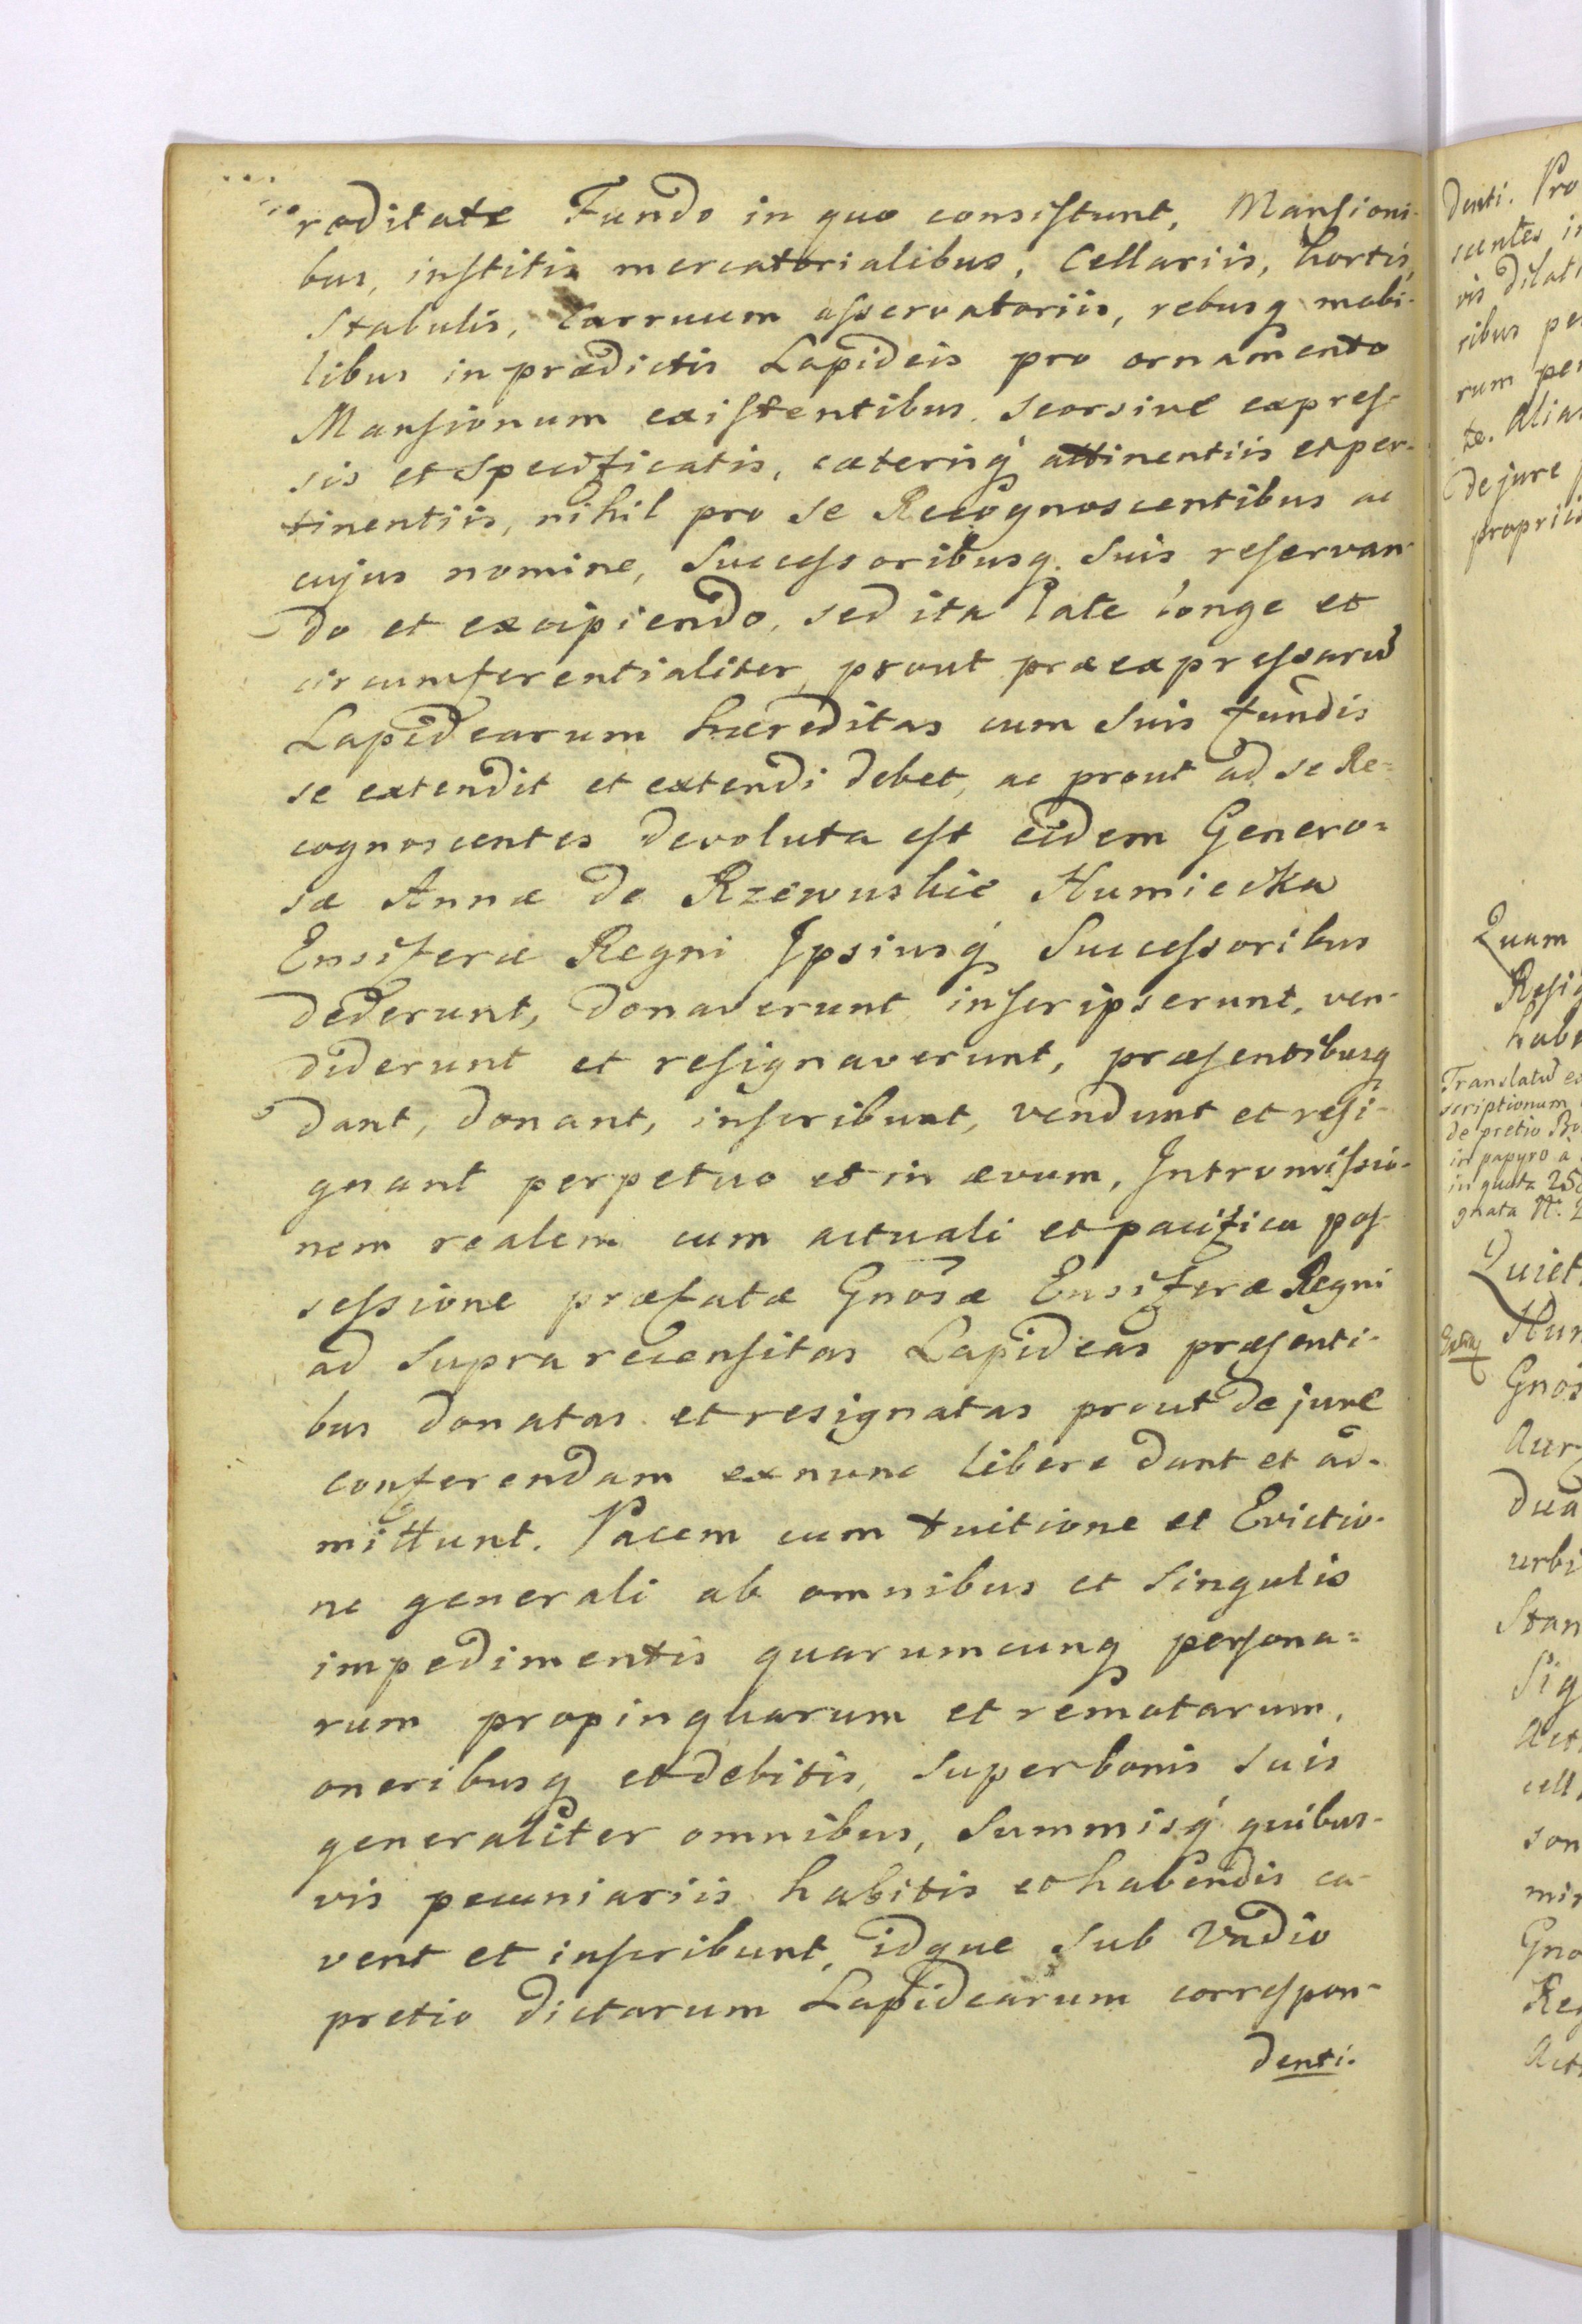 reditate Fundo in quo consistunt, Mansioni-
bus, institis mercatorialibus, Cellariis, hortis,
Stabulis, Carruum asservatoriis, rebusq mobi-
libus in prædictis Lapideis pro ornamento
Mansionum existentibus, seorsive expres-
sis et Specificatis, cæterisq attinentiis et per-
tinentiis, nihil pro se Recognoscentibus ac
cujus nomine, Successoribusq. Suis reservan-
do et excipiendo, sed ita late longe et
circumferentialiter, prout præexpressarū
Lapidearum hæreditas cum Suis fundis
se extendit et extendi debet, ac prout ad se Re=
cognoscentes devoluta est eidem Genero=
sæ Annæ de Rzewuskie Humiecka
Ensiferæ Regni Ipsiusq Successoribus
dederunt, donaverunt inscripserunt, ven-
diderunt et resignaverunt, præsentibusq
dant, donant, inscribunt, vendunt et resi-
gnant perpetuo et in ævum, Intromissio-
nem realem cum actuali et pacifica pos-
sessione præfatæ Gnōsæ Ensiferæ Regni
ad Supra recensitas Lapideas præsenti-
bus donatas et resignatas prout de jure
conferendam ex nunc libere dant et ad-
mittunt. Pacem cum tuitione et Evictio-
ne generali ab omnibus et Singulis
impedimentis quarumcunq persona=
rum propinquarum et remotarum,
oneribusq et debitis, Super bonis Suis
generaliter omnibus, Summisq quibus-
vis pecuniariis habitis et habendis ca-
vent et inscribunt, idque Sub Vadio
pretio dictarum Lapidearum correspon-
denti.
denti. Pro
ribus pe
rum per
te. Alia
de jure
propriis
Quam
Resig
habe
Translatū
scriptionum
de pretio
in papyro à
in quota 25
gnata N. 2
Quiet
Hum
Gnos
Aur
dua
urbi
Stan
Sig
Act
cell
son
min
Gno
Reg
Act